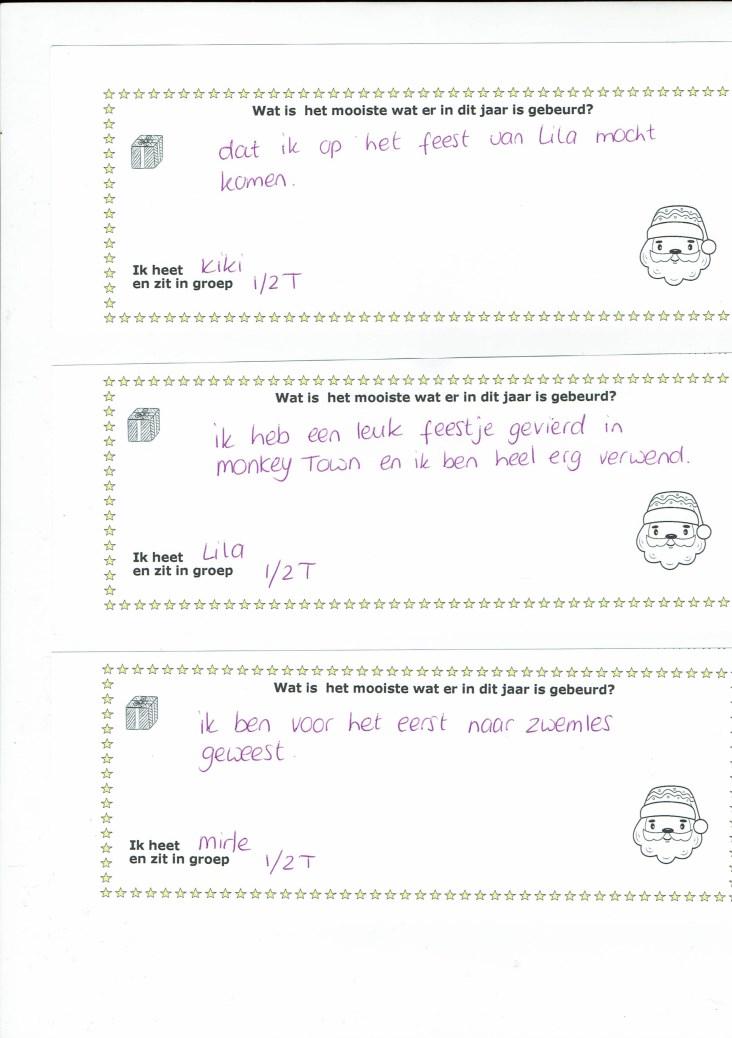 Wat is het mooiste wat er in dit jaar is gebeurd?
dat ik op het feest van Lila mocht
komen.
Ik heet kiki
en zit in groep 1/2 T
Wat is het mooiste wat er in dit jaar is gebeurd?
ik heb een leuk feestje gevierd in
monkey Town en ik ben heel erg verwend.
Ik heet Lila
en zit in groep 1/2 T
Wat is het mooiste wat er in dit jaar is gebeurd?
ik ben voor het eerst naar zwemles
geweest.
Ik heet mirle
en zit in groep 1/2 T